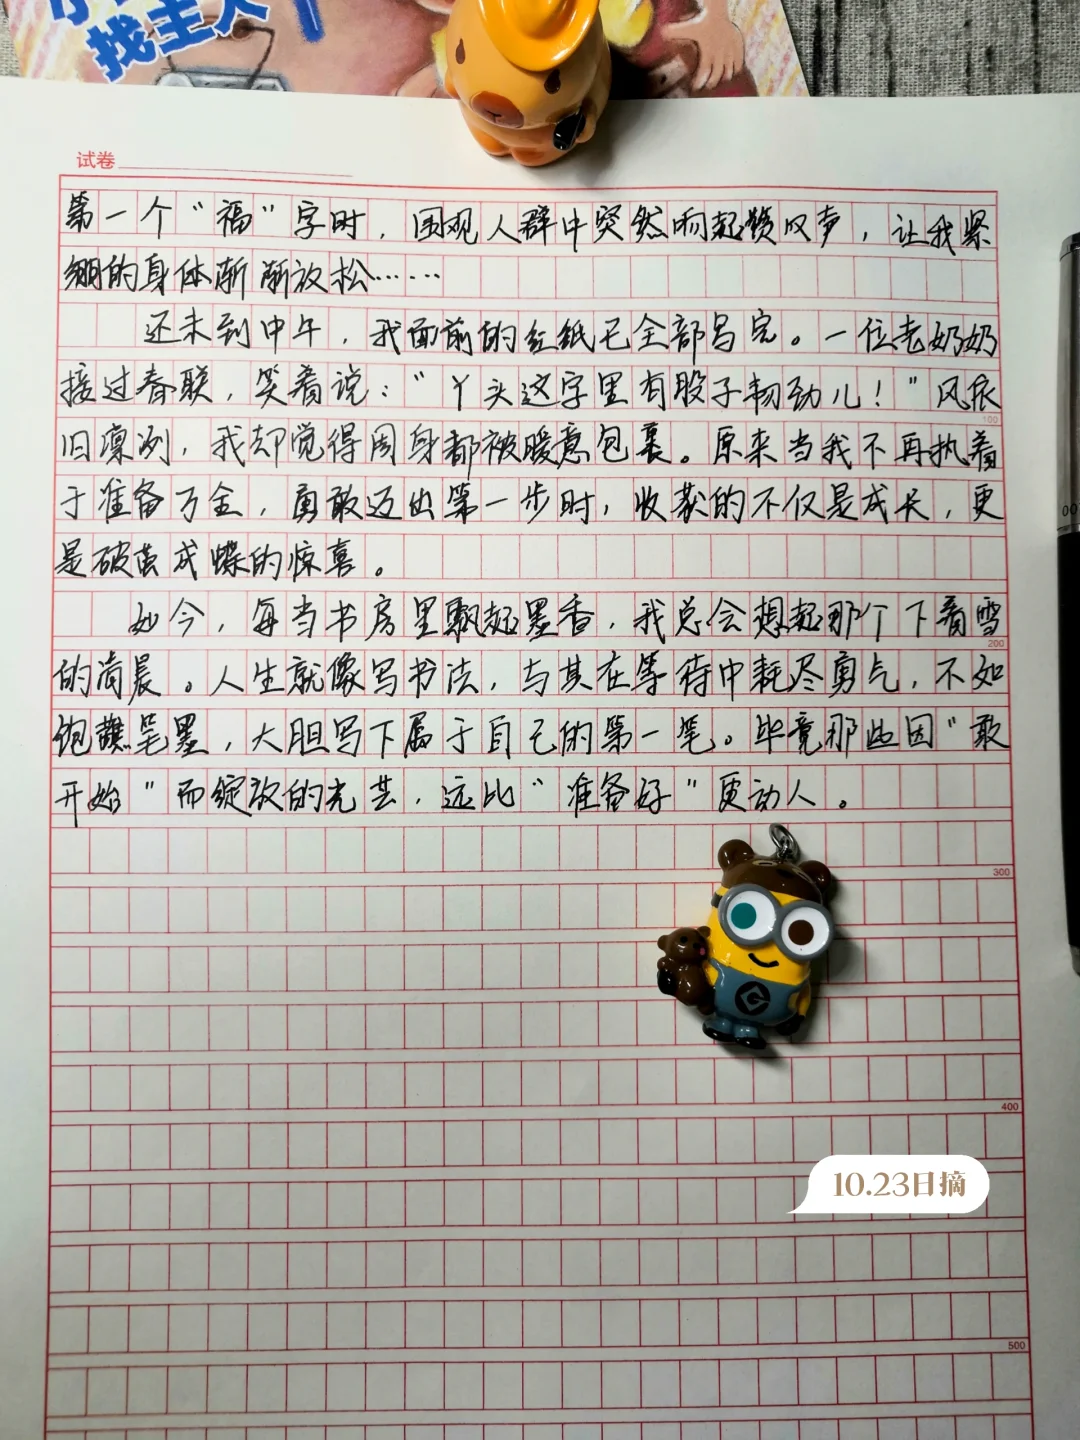 找主人
试卷
第一个“福”字时，围观人群中突然响起赞叹声，让我紧
绷的身体渐渐放松……
还未到中午，我面前的红纸已全部写完。一位老奶奶
接过春联，笑着说：“丫头这字里有股子韧劲儿！”风依
100
旧凛冽，我却觉得周身都被暖意包裹。原来当我不再执着
于准备万全，勇敢迈出第一步时，收获的不仅是成长，更
是破茧成蝶的惊喜。
如今，每当书房里飘起墨香，我总会想起那个下着雪
200
的清晨。人生就像写书法，与其在等待中耗尽勇气，不如
饱蘸笔墨，大胆写下属于自己的第一笔。毕竟那些因“敢
开始”而绽放的光芒，远比“准备好”更动人。
300
400
10.23日摘
500